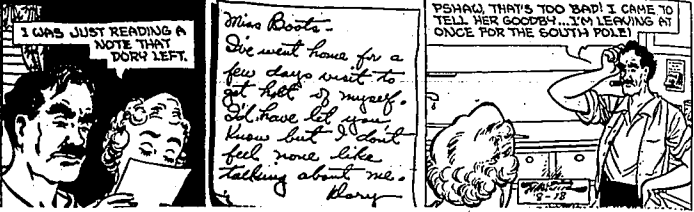 I WAS JUST READING A
NOTE THAT
DORY LEFT.
Miss Boots-
I've went home for a
few days visit to
get holt of myself.
I'd have let you
know but I don't
feel none like
talking about me.
Dory
PSHAW, THAT'S TOO BAD! I CAME TO
TELL HER GOODBY...I'M LEAVING AT
ONCE FOR THE SOUTH POLE!
8-18